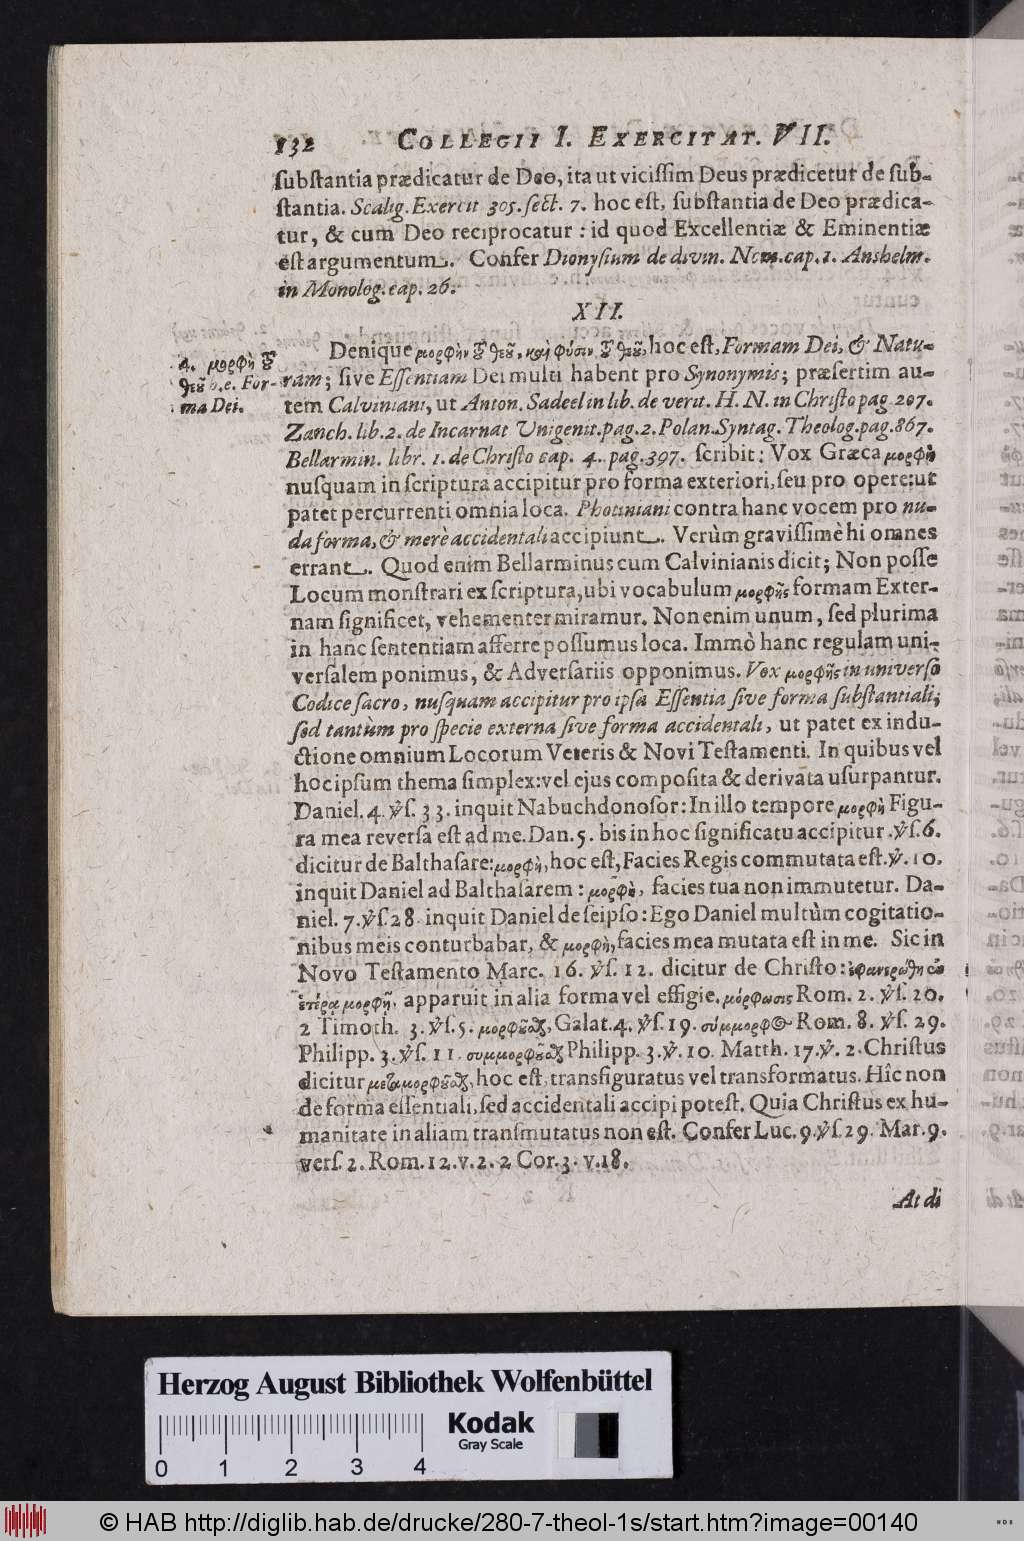 132 COLLEGII I. EXERCITAT. VII.
ſubſtantia prædicatur de Deo, ita ut viciſſim Deus prædicetur de ſub-
ſtantia. Scalig. Exercit 305. ſect. 7. hoc eſt, ſubſtantia de Deo prædica-
tur, & cum Deo reciprocatur: id quod Excellentiæ & Eminentiæ
eſt argumentum. Confer Dionyſium de divin. Nom. cap. 1. Anshelm.
in Monolog. cap. 26.
XII.
4. μορφὴ τοῦ
θεοῦ h.e. For-
ma Dei.
Denique μορφὴν τοῦ θεοῦ, καὶ φύσιν τοῦ θεοῦ, hoc eſt, Formam Dei, & Natu-
ram; ſive Eſſentiam Dei multi habent pro Synonymis; præſertim au-
tem Calviniani, ut Anton. Sadeel in lib. de verit. H. N. in Chriſto pag 207.
Zanch. lib. 2. de Incarnat Unigenit. pag. 2. Polan. Syntag. Theolog. pag. 867.
Bellarmin. libr. 1. de Chriſto cap. 4. pag. 397. ſcribit: Vox Græca μορφὴ
nuſquam in ſcriptura accipitur pro forma exteriori, ſeu pro opere: ut
patet percurrenti omnia loca. Photiniani contra hanc vocem pro nu-
da forma, & merè accidentali accipiunt. Verùm graviſſimè hi omnes
errant. Quod enim Bellarminus cum Calvinianis dicit; Non poſſe
Locum monſtrari ex ſcriptura, ubi vocabulum μορφῆς formam Exter-
nam ſignificet, vehementer miramur. Non enim unum, ſed plurima
in hanc ſententiam afferre poſſumus loca. Immò hanc regulam uni-
verſalem ponimus, & Adverſariis opponimus. Vox μορφῆς in univerſo
Codice ſacro, nuſquam accipitur pro ipſa Eſſentia ſive forma ſubſtantiali;
ſed tantùm pro ſpecie externa ſive forma accidentali, ut patet ex indu-
ctione omnium Locorum Veteris & Novi Teſtamenti. In quibus vel
hoc ipſum thema ſimplex: vel ejus compoſita & derivata uſurpantur.
Daniel. 4. v̓ſ. 33. inquit Nabuchdonoſor: In illo tempore μορφὴ Figu-
ra mea reverſa eſt ad me. Dan. 5. bis in hoc ſignificatu accipitur. v̓ſ. 6.
dicitur de Balthaſare: μορφὴ, hoc eſt, Facies Regis commutata eſt. v̓. 10.
inquit Daniel ad Balthaſarem: μορφὴ, facies tua non immutetur. Da-
niel. 7. v̓ſ. 28. inquit Daniel de ſeipſo: Ego Daniel multùm cogitatio-
nibus meis conturbabar, & μορφὴ, facies mea mutata eſt in me. Sic in
Novo Teſtamento Marc. 16. v̓ſ. 12. dicitur de Chriſto: ἐφανερώθη ἐν
ἑτέρᾳ μορφῇ, apparuit in alia forma vel effigie. μόρφωσις Rom. 2. v̓ſ. 20.
2 Timoth. 3. v̓ſ. 5. μορφοῦσθαι, Galat. 4. v̓ſ. 19. σύμμορφος Rom. 8. v̓ſ. 29.
Philipp. 3. v̓ſ. 11. συμμορφοῦσθαι Philipp. 3. v̓. 10. Matth. 17. v̓. 2. Chriſtus
dicitur μεταμορφοῦσθαι, hoc eſt, transfiguratus vel transformatus. Hîc non
de forma eſſentiali, ſed accidentali accipi poteſt. Quia Chriſtus ex hu-
manitate in aliam transmutatus non eſt. Confer Luc. 9. v̓ſ 29. Mar. 9.
verſ. 2. Rom. 12. v. 2. 2 Cor. 3. v. 18.
At di
Herzog August Bibliothek Wolfenbüttel
Kodak
Gray Scale
0 1 2 3 4
© HAB http://diglib.hab.de/drucke/280-7-theol-1s/start.htm?image=00140